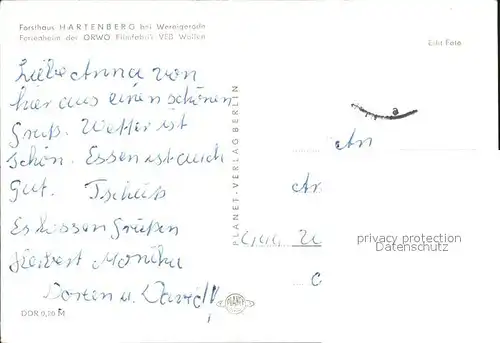 Forsthaus HARTENBERG bei Wernigerode
Ferienheim der ORWO Filmfabrik VEB Wolfen
Echt Foto
Liebe Anna von
hier aus einen schönen
Gruß. Wetter ist
schön. Essen ist auch
Gut. Tschüß
Es küssen Grüßen
Herbert Monika
Torsten u. David!
PLANET-VERLAG BERLIN
An
privacy protection
Datenschutz
PLANET
DDR 0,20 M